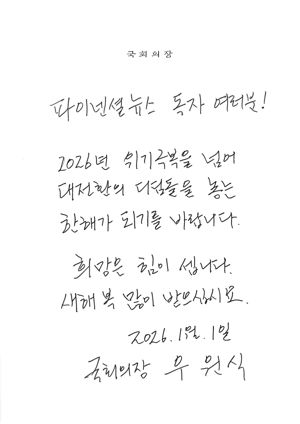 국회의장
파이낸셜뉴스 독자 여러분!
2026년 위기극복을 넘어
대전환의 디딤돌을 놓는
한해가 되기를 바랍니다.
희망은 힘이 셉니다.
새해 복 많이 받으십시오.
2026. 1월. 1일
국회의장 우원식